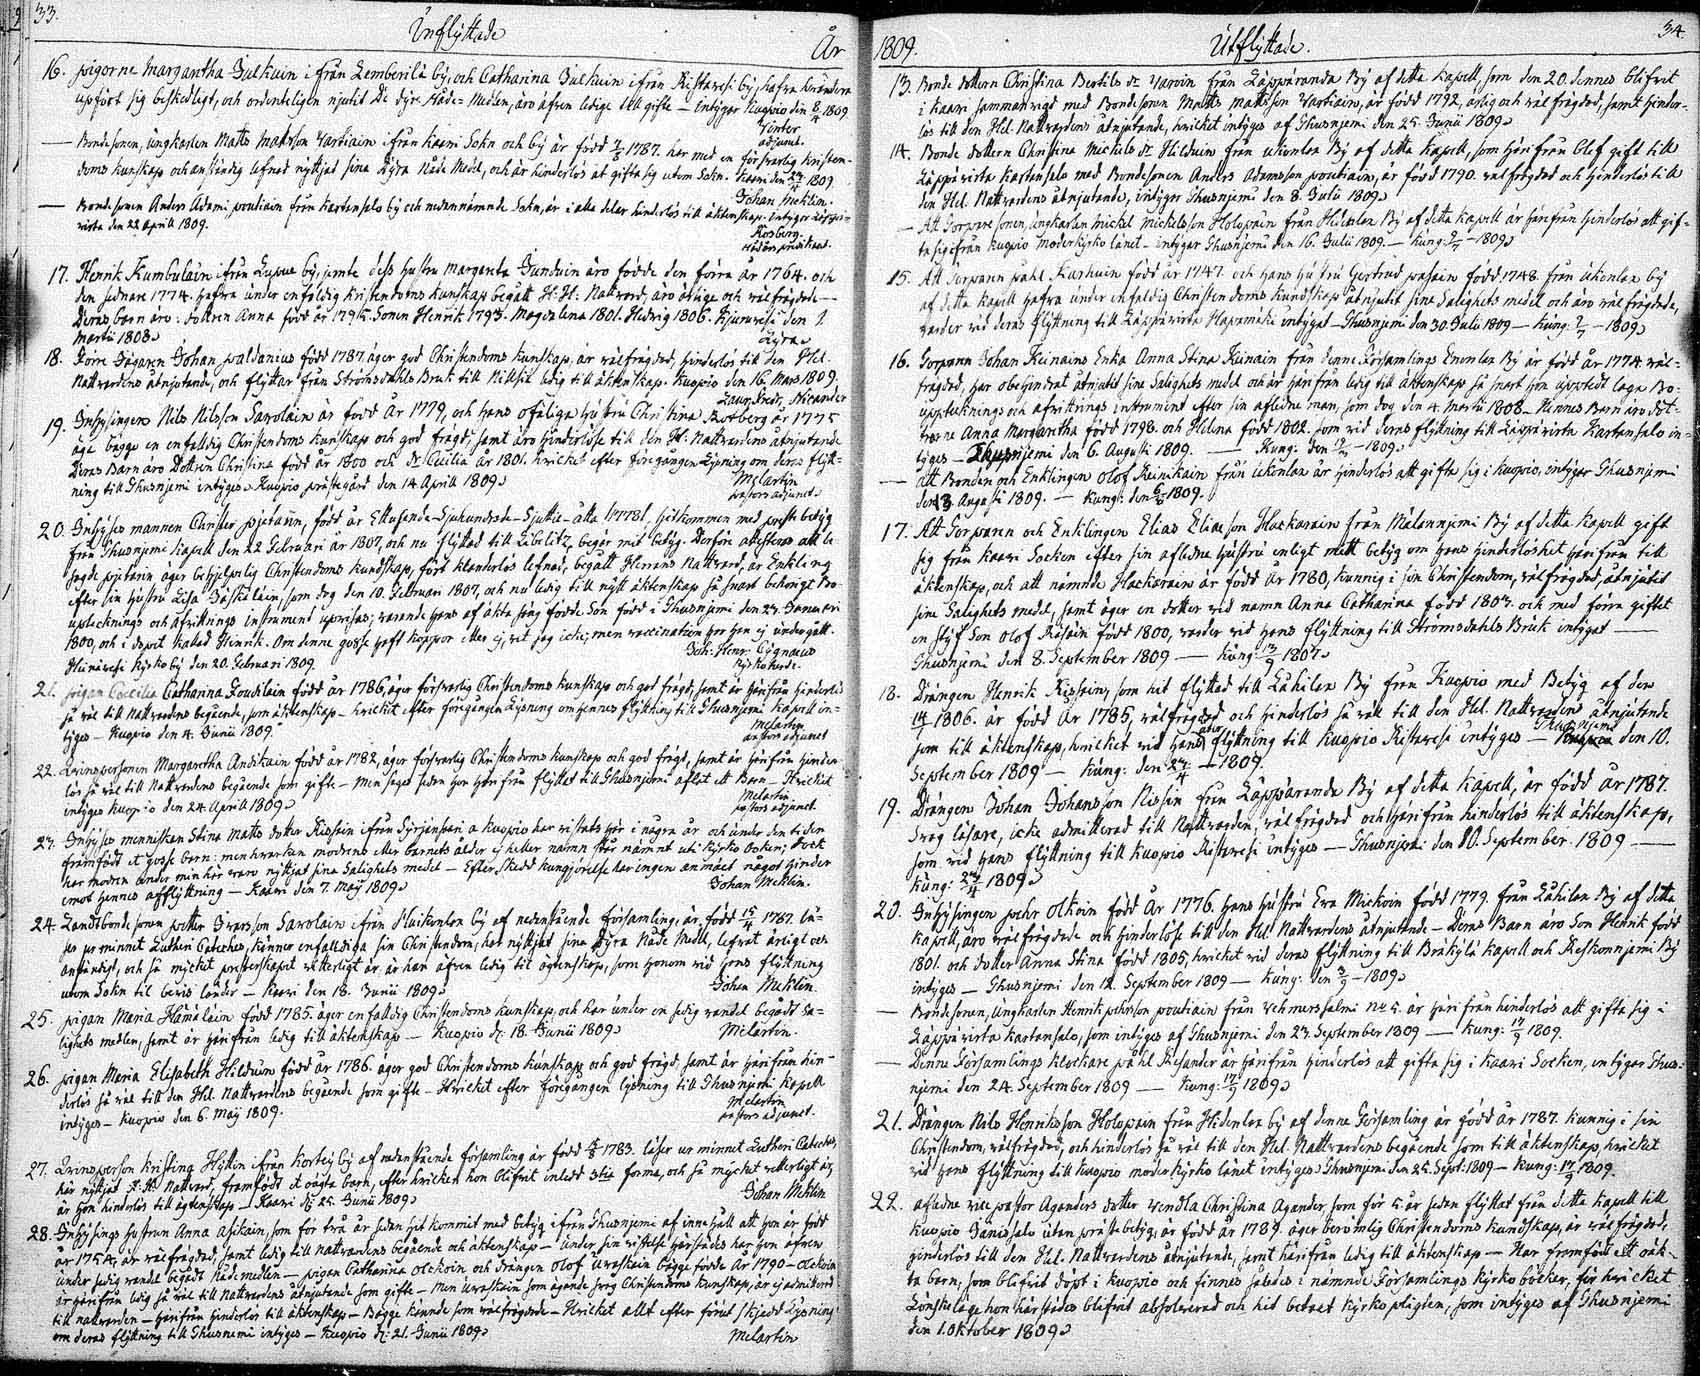 33.
Inflyttade
År
16. pigorne Margaretha Julkuin ifrån Lemberilä by, och Catharina Julkuin ifrån Ristavesi by, hafva
upfört sig beskedligt, och ordenteligen njutit De dyre Nåde-Medlen, äro äfven ledige till gifte — intygar Kuopio den 6/4 1809
Winter
adjunct.
— Bondesonen, ungkarlen Matts Mattsson Vartiain ifrån Kaavi Sokn och by är född 7/8 1787. har med en försvarlig Kristen-
doms kunskap och anständig lefnad nyttjat sina Dyra Nåde Medel, och är hinderlös at gifta sig utom Sokn. Kaavi den 24/4 1809
Johan Meklin.
— Bondesonen Anders Adami poutiain från Kartansalo by och nedannämnde Sokn, är i alla delar hinderlös till äktenskap. intygar Leppä-
virta den 22 Aprill 1809.
Kosberg.
17. Henrik Kumbulain ifrån by, jemte dess hustru Margareta Sunduin äro födde den förra år 1764. och
den sednare 1774. hafva under enfaldig Kristendoms kunskap begått H. H. Nattvard, äro ärlige och välfrägdade —
Deras barn äro: dottren Anna född år 1795. Sonen Henrik 1793. Magdalena 1801. Hedvig 1806. den 1.
Martii 1808.
18. Johan Waldanius född 1787. äger god Christendoms kunskap, är välfrägdad, hinderlös til den Hel.
Nattvardens åtnjutande, och flyttar från Strömsdahls Bruk till ledig till äktenskap. Kuopio den 16. Mars 1809.
Laur. Fredr. Nicander
19. Inhysingen Nils Nilsson Savolain är född År 1779, och hans ofälliga hustru Christina Rotberg år 1775
äga bägge en enfaldig Christendoms kunskap och god frägd, samt äro hinderlöse till den H. Nattvardens åtnjutande
Deras Barn äro Dottren Christina född år 1800 och Dr Cecilia år 1801. hvicket efter föregången Lysning om deras flytt-
ning till Thusnjemi intyges. Kuopio prästegård den 14 Aprill 1809.
Melartin
pastors adjunct.
20. Inhyses mannen Christer född år Ettusende-Sjuhundrade-Sjuttio-åtta 1778, hitkommen med preste betyg
från Thusnjemi Kapell den 22 Februari år 1807, och nu flyttad till Libelitz, begär mit betyg. Derföre attesteras att be-
sagde äger behjelpelig Christendoms kundskap, fört klanderlös lefnad, begått Herrans Nattvard, är Enkling
efter sin hustru Lisa Jäskäläin, som dog den 10. Februari 1807, och nu ledig till nytt äktenskap så snart behörigt Bo-
uptecknings och afvittrings instrument upvisas; varande hans af äkta säng födde Son född i Thusnjemi den 23. Januari
1800, och i dopet kallad Henrik. Om denne gosse haft koppor eller ej, vet jag icke; men vaccination har han ej undergått.
Joh. Henr. Cygnaeus
Kyrkoherde.
Kyrkoby den 20. Februari 1809.
21. pigan Caecilia Catharina Foudilain född år 1786, äger försvarlig Christendoms kunskap och god frägd, samt är härifrån hinderlös
så väl till Nattvardens begående, som äktenskap — hvicket efter föregången Lysning om hennes flyttning till Thusnjemi Kapell in-
tyges — Kuopio den 4. Junii 1809.
Melartin
pastors adjunct
22. Qvinspersonen Margaretha Andikain född år 1782, äger försvarlig Christendoms kunskap och god frägd, samt är härifrån hinder-
lös så väl till Nattvardens begående som gifte — Men sedan hon härifrån flyttat till Thusnjemi aflat ett Barn — Hvicket
intyges Kuopio den 24. Aprill 1809.
Melartin.
pastors adjunct.
23. Inhyses menniskan Stina Matts dotter Rissain ifrån Syrjänsari a Kuopio har vistats här i några år och under den tiden
framfödt et gosse barn: men hvarken modrens eller barnets ålder ej heller namn står nämnt uti Kyrko Boken; dock
har modren under min här varo nyttjat sina Salighets medel — Efter skedd kungjörelse har ingen anmält något hinder
emot hennes afflyttning — Kaavi den 7. May 1809.
Johan Meklin.
24. Landtbonde sonen petter Ivarsson Savolain ifrån Maikonlax by af nedanstående församling, är född 15/4 1767. lä-
ses ur minnet Lutheri Cateches, känner enfaldiga sin Christendom, har nyttjat sina Dyra Nåde Medel, lefvat ärligt och
anständigt, och så mycket presterskapet vetterligit är, är han äfven ledig til ägtenskap, som honom vid hans flyttning
utom Sokn til bevis länder — Kaavi den 18. Junii 1809.
Johan Meklin.
25. pigan Maria Hämälain född 1785. äger enfaldig Christendoms kunskap, och har under en sedig vandel begådt Sa-
lighets medlen, samt är härifrån ledig till äktenskap — Kuopio d: 18. Junii 1809.
Melartin.
26. pigan Maria Elisabeth Hilduin född år 1786. äger god Christendoms kunskap och god frägd, samt är härifrån hin-
derlös så väl till den Hel. Nattvardens begående som gifte — Hvicket efter föregången lysning till Thusnjemi Kapell
intyges — Kuopio den 6. May 1809.
Melartin
pastors adjunct.
27. Qvinsperson Kristina Hyttin ifrån Kortej by af nedanstående församling är född 6/8 1783. läser ur minnet Lutheri Cateches,
har nyttjat H. H. Nattvard, framfödt et oägta barn, efter hvicken hon blifvit inledd 3tie forma, och så mycket vetterligt är,
är hon hinderlös til ägtenskap — Kaavi d: 25. Junii 1809.
Johan Meklin
28. Inhysings hustrun Anna Asikain, som för två år sedan hit kommit med betyg ifrån Thusnjemi af innehåll att hon är född
år 1754, är välfrägdad, samt ledig till nattvardens begående och äktenskap — Under sin vistelse härstädes har hon äfven
under sedig vandel begådt Nådemedlen — pigan Catharina olckoin och drängen Olof Uvaskain bägge födde År 1790 — olckoin
är härifrån ledig så väl till Nattvardens åtnjutande som gifte — Men Uvaskain som ägande svag Christendoms kunskap, är ej admitterad
till nattvarden — härifrån hinderlös till äktenskap — Bägge kännde som välfrägdade — Hvicket allt efter förut skjedd Lysning
om deras flyttning till Thusnjemi intyges — Kuopio d: 21. Junii 1809.
Melartin
1809.
Utflyttade.
34.
13. Bonde dottern Christina Bertils Dr Varoin från Läppäranda By af detta Kapell, som den 20. dennes blifvit
i Kaavi sammanvigd med Bondesonen Matts Mattsson Vartiain, är född 1792, ärlig och välfrägdad, samt hinder-
lös till den Hel. Nattvardens åtnjutande, hvilcket intyges af Thusnjemi den 25. Junii 1809.
14. Bonde dottern Christina Mickels Dr Hilduin från Ukonlax By af detta Kapell, som härifrån blef gift till
Läppävirta Kartansalo med Bondesonen Anders Adamsson poutiain, är född 1790. välfrägdad och hinderlös till
den Hel. Nattvardens åtnjutande, intyger Thusnjemi den 8. Julii 1809.
— Att Torpare sonen, ungkarlen Mickel Mickelsson Holopain från Hidenlax By af detta kapell är härifrån hinderlös att gif-
ta sig ifrån Kuopio moderkyrko länet — intygar Thusnjemi den 16. Julii 1809. — Kung: 9/7 — 1809.
15. Att Torparen påhl Karhuin född år 1747. och hans hustru Gertrud wasain född 1748. från Ukonlax by
af detta kapell hafva under enfaldig Christendoms kundskap åtnjutit sine Salighets medel och äro välfrägdade,
varder vid deras flyttning till Läppävirta Hapamäki intygat — Thusnjemi den 30. Julii 1809 — Kung: 2/7 — 1809.
16. Torparen Johan Keinains Enka Anna Stina Keinain från denne Församlings Enonlax By är född år 1774. väl-
frägdad, har obehindrat åtnjutit sine Salighets medel och är härifrån ledig till äktenskap så snart hon upptedt laga Bo-
upptecknings och afvittrings instrument efter sin aflidne man, som dog den 4. Martii 1808 — Hennes Barn äro döt-
trarne Anna Margaretha född 1798. och Helena född 1802. som vid deras flyttning till Läppävirta Kartansalo in-
tyges — Thusnjemi den 6. Augusti 1809. — Kung: den — 1809.
— Att Bonden och Enklingen Olof Keinikain från Ukonlax är hinderlös att gifta sig i Kuopio, intygar Thusnjemi
den 13 Augusti 1809. — Kung: den 6/8 1809.
17. Att Torparen och Enklingen Elias Eliæson Hackarain från Mälannjemi By af detta Kapell gift
sig från Kaavi Socken efter sin aflidne hustru enligt mitt betyg om hans hinderlöshet härifrån till
äktenskap, och att nämnde Hackarain är född År 1780, kunnig i sin Christendom, välfrägdad, åtnjutit
sine Salighets medel, samt äger en dotter vid namn Anna Catharina född 1803. och med förra giftet
en styf Son Olof Räsäin född 1800, varder vid hans flyttning till Strömsdahls Bruk intygat —
Thusnjemi den 8. September 1809 — Kung: 13/9 1807.
18. Drängen Henrik Rissain, som hit flyttad till Lähilax By från Kuopio med Betyg af den
14/4 1806. är född År 1785, välfrägdad och hinderlös så väl till den Hel. Nattvardens åtnjutande
som till äktenskap, hvilcket vid hans flyttning till Kuopio Ristavesi intyges — Thusnjemi den 10.
September 1809 — Kung: den 23/4 — 1809.
19. Drängen Johan Johansson Nissin från Läppäranda By af detta Kapell, är född År 1787.
Svag läsare, icke admitterad till Nattvarden, välfrägdad och härifrån hinderlös till äktenskap,
som vid hans flyttning till Kuopio Ristavesi intyges — Thusnjemi den 10. September 1809 —
Kung: 23/4 1809.
20. Inhysingen pehr Olkoin född År 1776. hans hustru Eva Mickoin född 1779. från Lähilax By af detta
Kapell, äro välfrägdade och hinderlöse till den Hel. Nattvardens åtnjutande — Deras Barn äro Son Henrik född
1801. och dotter Anna Stina född 1805, hvicket vid deras flyttning till Bräkylä Kapell och Keskonnjemi By
intyges — Thusnjemi den 12. September 1809 — Kung: den 3/9 — 1809.
— Bondesonen, Ungkarlen Henrik pehrsson poutiain från Vehmersalmi No 5. är härifrån hinderlös att gifta sig i
Läppävirta Kartansalo, som intyges af Thusnjemi den 23. September 1809 — Kung: 17/9 1809.
— Denne Församlings klockare påhl Thelander är härifrån hinderlös att gifta sig i Kaavi Socken, intygar Thus-
njemi den 24. September 1809 — Kung: 17/9 1809.
21. Drängen Nils Henriksson Holopain från Hidenlax by af denne Församling är född år 1787. kunnig i sin
Christendom, välfrägdad, och hinderlös så väl till den Hel. Nattvardens begående som till äktenskap, hvicket
vid hans flyttning till Kuopio moder kyrko länet intyges. Thusnjemi den 25. Sept: 1809 — Kung: 17/9 1809.
22. aflidne vice pastor Aganders dotter Vendla Christina Agander, som för 5. år sedan flyttat från detta Kapell till
Kuopio utan prästebetyg, är född år 1787. äger berömlig Christendoms kundskap, är välfrägdad,
hinderlös till den Hel. Nattvardens åtnjutande, samt härifrån ledig till äktenskap — Har framfödt ett oäk-
ta barn, som blifvit döpt i Kuopio och finnes således i nämnde Församlings Kyrko böcker, för hvicket
Lönskeläge hon härstädes blifvit absolverad och hit betalt Kyrkoplägten, som intyges af Thusnjemi
den 1. Oktober 1809.